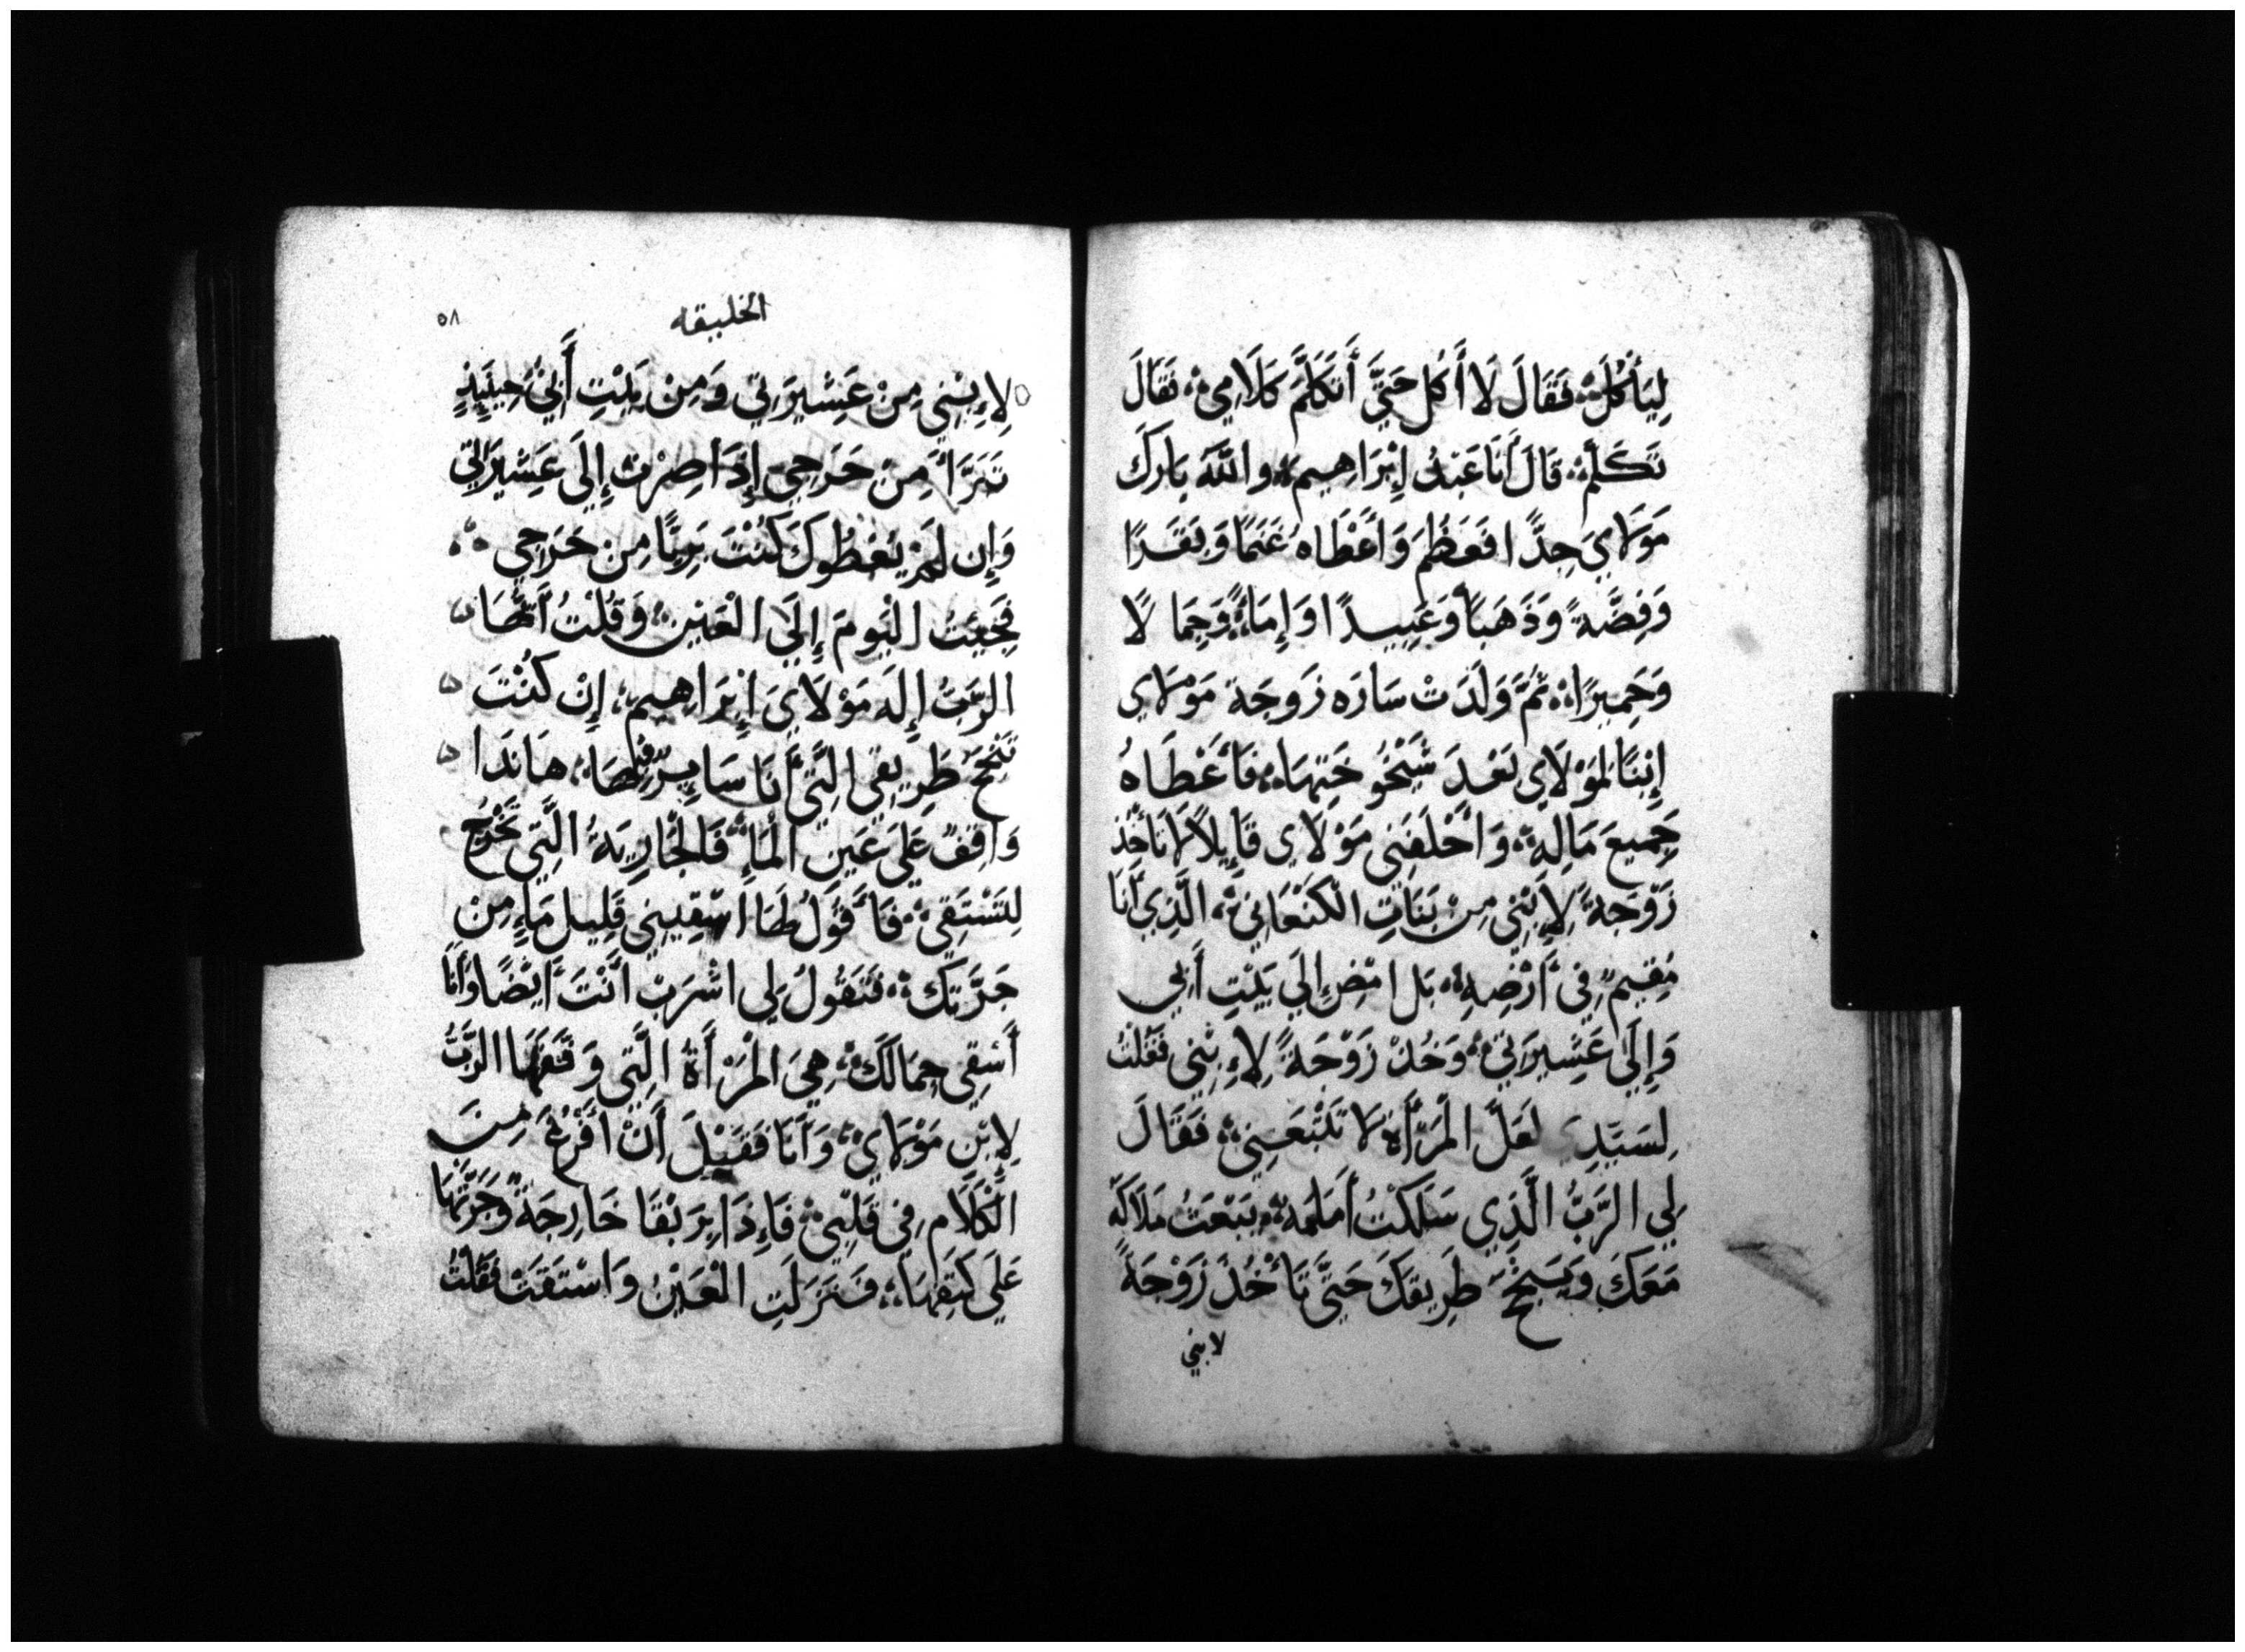 لِيَأكُلَ فَقَالَ لَا أَكُل حَتَّى أَتَكَلَّمَ كَلَامِي فَقَالَ
تَكَلَّمْ قَالَ أَنَا عَبْدُ إِبْرَاهِيمَ واللَّهَ بَارَكَ
مَوْلَايَ جِدًّا فَعَظُمَ وَأَعْطَاهُ غَنَمًا وَبَقَرًا
وَفِضَّةً وَذَهَبًا وَعَبِيدًا وَإِمَاءً وَجِمَالًا
وَحَمِيرًا ثُمَّ وَلَدَتْ سَارَه زَوجَة مَوْلَاي
إِبْنًا لِمَوْلَاي بَعْدَ شَيْخُوخَتِهَا فَأَعْطَاهُ
جَمِيعَ مَالِهِ وَأَحْلَفَنِي مَوْلَاي قَايِلاً لَا تَأْخُذ
زَوْجَةً لِإِبْنِي مِنْ بَنَاتِ الْكَنْعَانِي الَّذِي أَنَا
مُقِيمٌ فِي أَرْضِهِ بَل امْضِ إِلَى بَيْتِ أَبِي
وَإِلَى عَشِيرَتِي وَخُذْ زَوْجَةً لِإِبْنِي فَقُلْتُ
لِسَيِّدِي لَعَلَّ الْمَرْأَة لَا تَتْبَعنِي فَقَالَ
لِي الرَّبُّ الَّذِي سَلَكْتُ أَمَامَهُ يَبْعَثُ مَلَاكَهُ
مَعَكَ وَيُنْجِحُ طَرِيقَكَ حَتَّى تَأْخُذَ زَوْجَةً
لابني
الخليقه ٥٨
لِإِبْنِي مِنْ عَشِيرَتِي وَمِنْ بَيْتِ أَبِي حِينَئِذٍ
تَبَرَّأ مِنْ حَرَجِي إِذَا صِرْتَ إِلَى عَشِيرَتِي
وَإِن لَمْ يُعْطُوكَ كُنْتَ بَرِيًّا مِنْ حَرَجِي
فَجِئْتُ الْيَومَ إِلَى الْعَيْنِ وَقُلْتُ أَيُّهَا
الرَّبُّ إِلَه مَوْلَايَ إِبْرَاهِيم إِنْ كُنْتَ
تُنْجِحُ طَرِيقِي الَّتِي أَنَا سَايِرٌ فِيهَا هَانَذَا
وَاقِفٌ عَلَى عَيْنِ الْمَاءِ فَالْجَارِيَةُ الَّتِي تَخْرُجُ
لِتَسْتَقِي فَأَقُولُ لَهَا اسْقِينِي قَلِيل مَاءٍ مِنْ
جَرَّتِكِ فَتَقُولُ لِي اشْرَبْ أَنْتَ أَيْضًا وَأَنَا
أَسْقِي جِمَالَكَ هِيَ الْمَرْأَةُ الَّتِي وَفَّقَهَا الرَّبُّ
لِابْنِ مَوْلَاي وَأَنَا فَقَبْلَ أَنْ أَفْرَغَ مِنَ
الْكَلَامِ فِي قَلْبِي فَإِذَا بِرَبْقَا خَارِجَةً وَجَرَّتُهَا
عَلَى كَتِفِهَا فَنَزَلَتِ الْعَيْنُ وَاسْتَقَتْ فَقُلْتُ